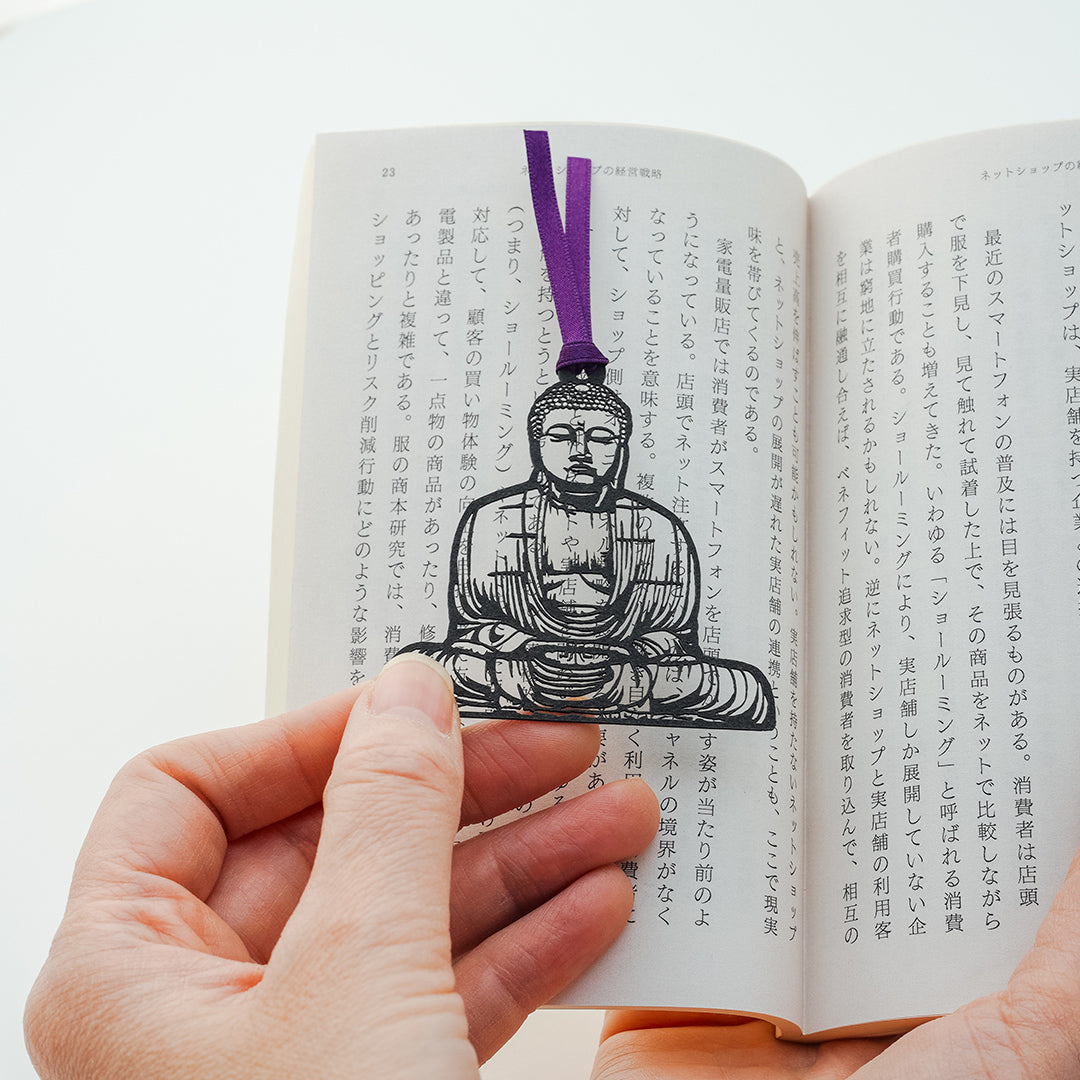 ネットショップの
ットショップは、実店舗を持つ企業
最近のスマートフォンの普及には目を見張るものがある。消費者は店頭
で服を下見し、見て触れて試着した上で、その商品をネットで比較しながら
購入することも増えてきた。いわゆる「ショールーミング」と呼ばれる消費
者購買行動である。ショールーミングにより、実店舗しか展開していない企
業は窮地に立たされるかもしれない。逆にネットショップと実店舗の利用客
を相互に融通し合えば、ベネフィット追求型の消費者を取り込んで、相互の
23
ップの経営戦略
売上高を伸ばすことも可能かもしれない。実店舗を持たないネットショップ
と、ネットショップの展開が遅れた実店舗の連携と ことも、ここで現実
味を帯びてくるのである。
家電量販店では消費者がスマートフォンを店頭 す姿が当たり前のよ
うになっている。店頭でネット注 は、 ャネルの境界がなく
なっていることを意味する。複 く利用 費者に
対して、ショップ側
を持つとう
（つまり、ショールーミング）
対応して、顧客の買い物体験の向
電製品と違って、一点物の商品があったり、修
あったりと複雑である。服の商本研究では、消費
ショッピングとリスク削減行動にどのような影響を